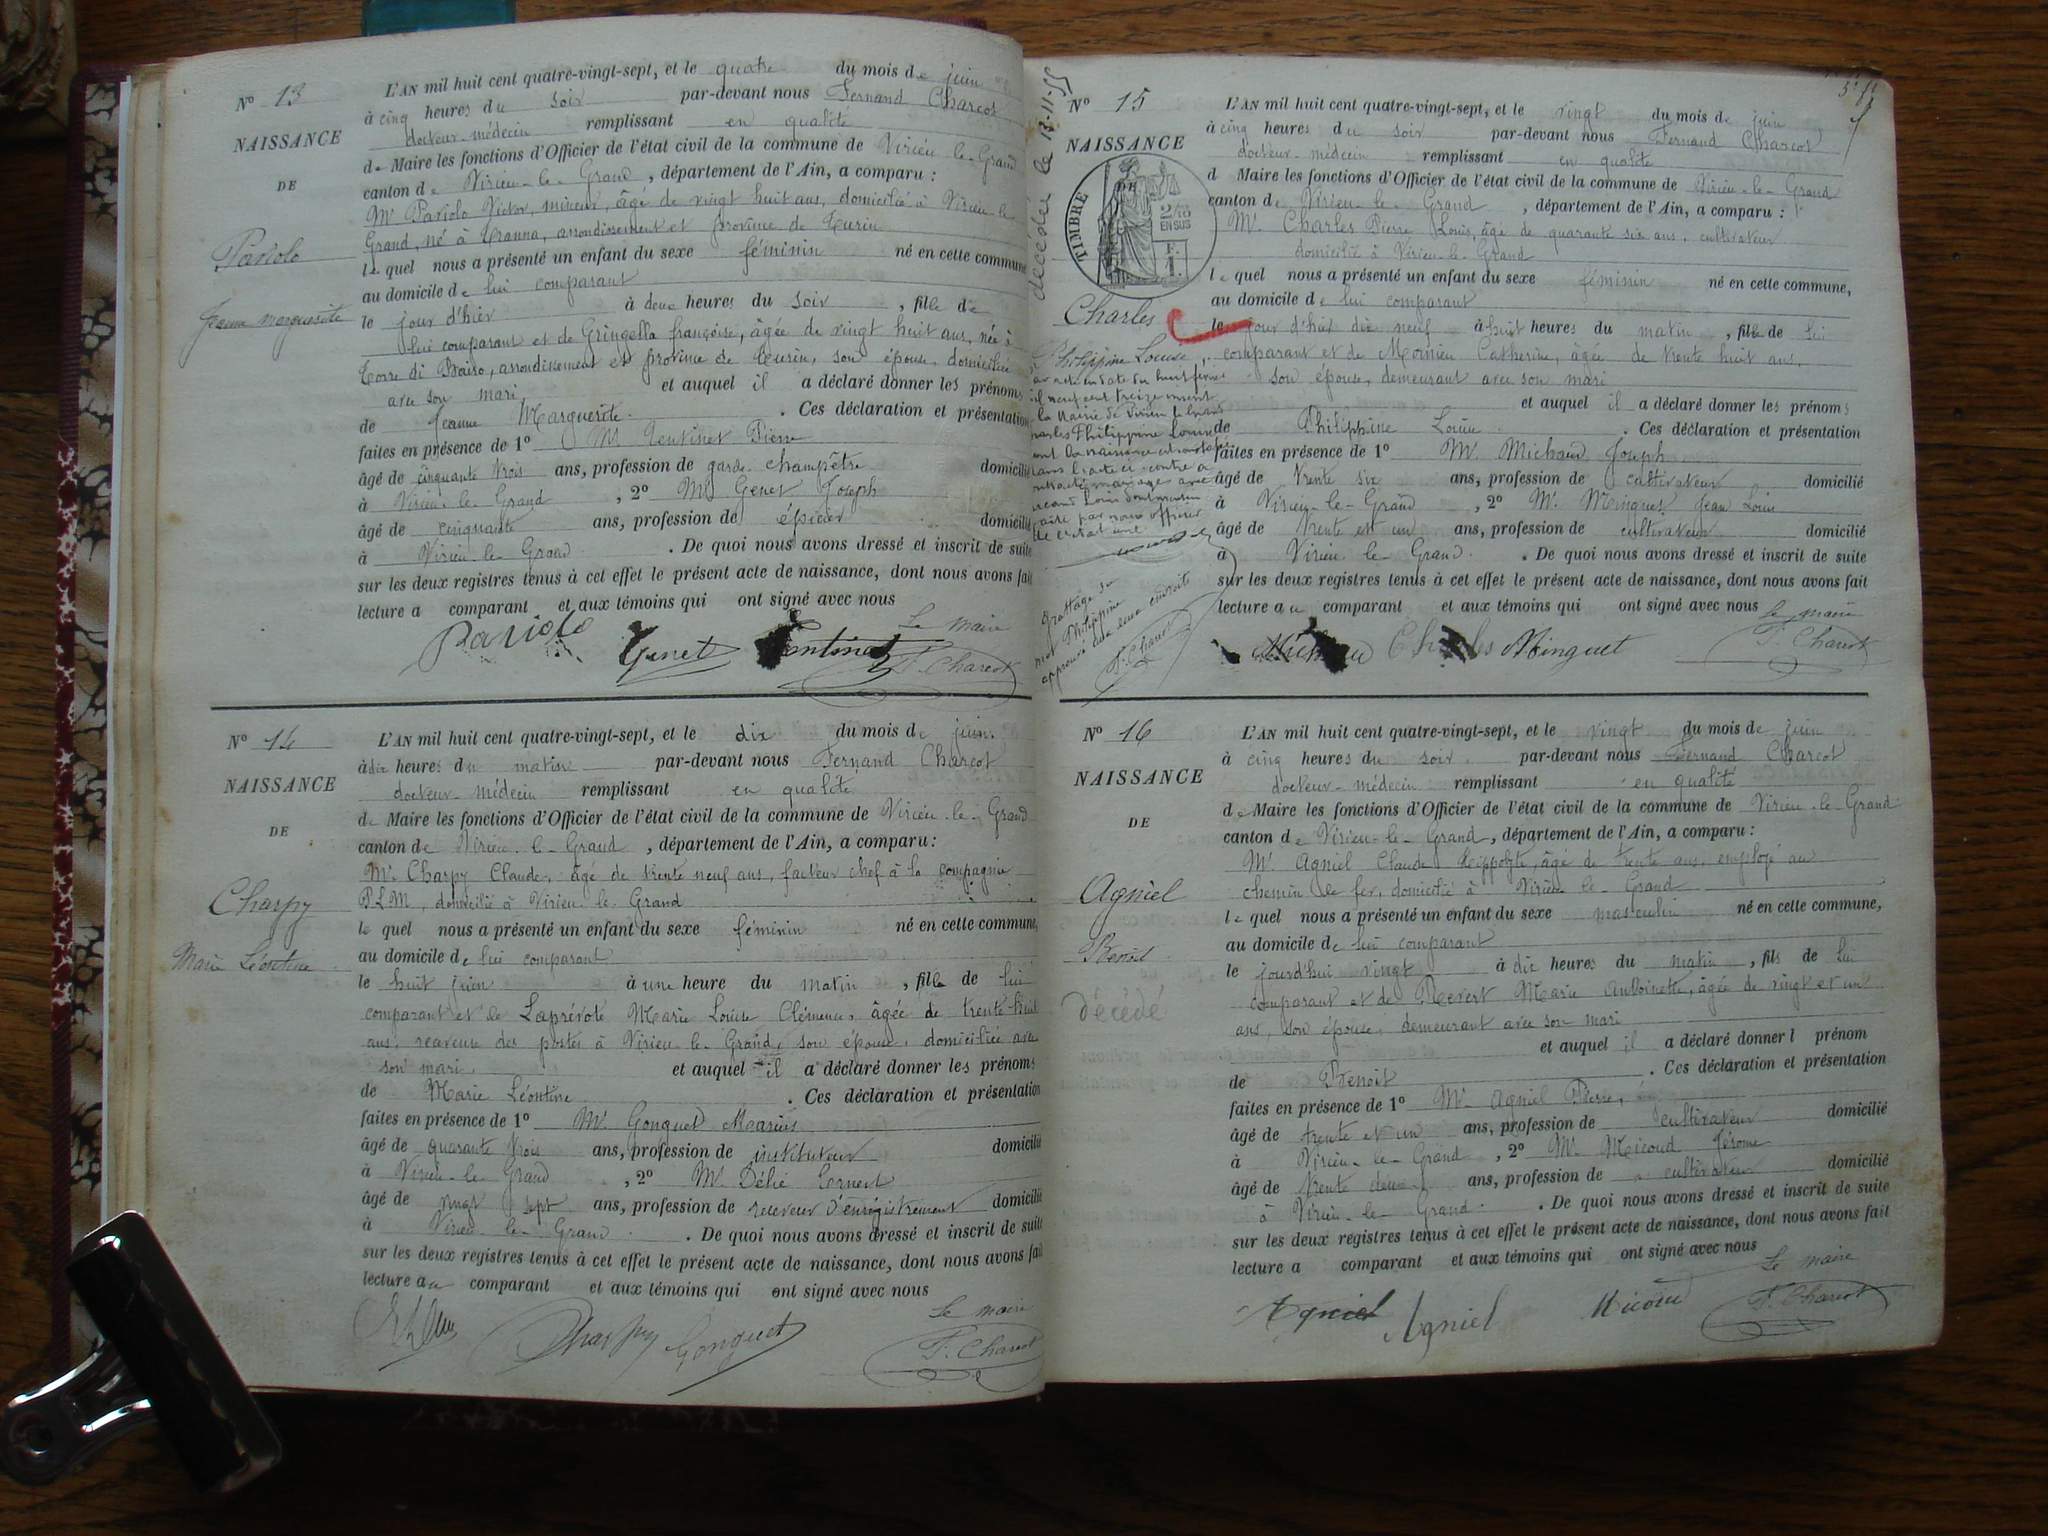 N° 13
NAISSANCE
DE
Pariolo
Jeanne Marguerite
L'AN mil huit cent quatre-vingt-sept, et le quatre du mois de juin
à cinq heures du soir par-devant nous Fernand Charcot
docteur-médecin remplissant en qualité
de Maire les fonctions d'Officier de l'état civil de la commune de Virieu-le-Grand
canton de Virieu-le-Grand, département de l'Ain, a comparu :
Mr Pariolo Victor, mineur, âgé de vingt huit ans, domicilié à Virieu le
Grand, né à arrondissement et province de Turin
le quel nous a présenté un enfant du sexe féminin né en cette commune
au domicile de lui comparant
le jour d'hier à deux heures du soir, fille de
lui comparant et de Gringella françoise, âgée de vingt huit ans, née à
Torre di Bairo, arrondissement et province de Turin, son épouse, domiciliée
avec son mari et auquel il a déclaré donner les prénoms
de Jeanne Marguerite. Ces déclaration et présentation
faites en présence de 1° M Tentinet Pierre
âgé de cinquante trois ans, profession de garde champêtre domicilié
à Virieu-le-Grand, 2° Mr Genet Joseph
âgé de cinquante ans, profession de épicier domicilié
à Virieu-le-Grand. De quoi nous avons dressé et inscrit de suite
sur les deux registres tenus à cet effet le présent acte de naissance, dont nous avons fait
lecture a comparant et aux témoins qui ont signé avec nous
Le maire
Pariolo Genet Tentinet F. Charcot
N° 14
NAISSANCE
DE
Charpy
Marie Léontine
L'AN mil huit cent quatre-vingt-sept, et le dix du mois de juin.
à dix heures du matin par-devant nous Fernand Charcot
docteur-médecin remplissant en qualité
de Maire les fonctions d'Officier de l'état civil de la commune de Virieu-le-Grand
canton de Virieu-le-Grand, département de l'Ain, a comparu :
Mr Charpy Claude, âgé de trente neuf ans, facteur chef à la compagnie
P.L.M, domicilié à Virieu le Grand
le quel nous a présenté un enfant du sexe féminin né en cette commune,
au domicile de lui comparant
le huit juin à une heure du matin, fille de lui
comparant et de Laprévote Marie Louise Clémence, âgée de trente-huit
ans, receveuse des postes à Virieu-le-Grand, son épouse, domiciliée avec
son mari et auquel il a déclaré donner les prénoms
de Marie Léontine. Ces déclaration et présentation
faites en présence de 1° Mr Gonguet Marius
âgé de quarante trois ans, profession de instituteur domicilié
à Virieu-le-Grand, 2° Mr Délié Ernest
âgé de vingt sept ans, profession de receveur d'enregistrement domicilié
à Virieu-le-Grand. De quoi nous avons dressé et inscrit de suite
sur les deux registres tenus à cet effet le présent acte de naissance, dont nous avons fait
lecture au comparant et aux témoins qui ont signé avec nous
Le maire
Charpy Gonguet F. Charcot
décédée le 13-11-55
N° 15
NAISSANCE
DE
TIMBRE
2/10 EN SUS
F. 1.
Charles
Philippine Louise
par acte en date du huit février
mil neuf cent treize inscrit
à la Mairie de Virieu le Grand
Charles Philippine Louise
dont la naissance est constatée
dans l'acte ci-contre a
contracté mariage avec
Louis
par nous officier
de l'état civil
grattage du
mot Philippine
approuvé aux deux endroits
F. Charcot
L'AN mil huit cent quatre-vingt-sept, et le vingt du mois de juin
à cinq heures du soir par-devant nous Fernand Charcot
docteur-médecin remplissant en qualité
d Maire les fonctions d'Officier de l'état civil de la commune de Virieu-le-Grand
canton de Virieu-le-Grand, département de l'Ain, a comparu :
Mr Charles Pierre Louis, âgé de quarante six ans, cultivateur
domicilié à Virieu-le-Grand
le quel nous a présenté un enfant du sexe féminin né en cette commune,
au domicile de lui comparant
le jour d'hier dix neuf à huit heures du matin, fille de lui
comparant et de Moirieu Catherine, âgée de trente huit ans,
son épouse, demeurant avec son mari
et auquel il a déclaré donner les prénoms
de Philippine Louise. Ces déclaration et présentation
faites en présence de 1° Mr Michaud Joseph
âgé de trente six ans, profession de cultivateur domicilié
à Virieu-le-Grand, 2° Mr Minguet Jean Louis
âgé de trente et un ans, profession de cultivateur domicilié
à Virieu-le-Grand. De quoi nous avons dressé et inscrit de suite
sur les deux registres tenus à cet effet le présent acte de naissance, dont nous avons fait
lecture au comparant et aux témoins qui ont signé avec nous
Le maire
Michaud Charles Minguet F. Charcot
N° 16
NAISSANCE
DE
Agniel
Benoit
décédé
L'AN mil huit cent quatre-vingt-sept, et le vingt du mois de juin
à cinq heures du soir par-devant nous Fernand Charcot
docteur-médecin remplissant en qualité
de Maire les fonctions d'Officier de l'état civil de la commune de Virieu-le-Grand
canton de Virieu-le-Grand, département de l'Ain, a comparu :
Mr Agniel Claude Hippolyte, âgé de trente ans, employé au
chemin de fer, domicilié à Virieu-le-Grand
le quel nous a présenté un enfant du sexe masculin né en cette commune,
au domicile de lui comparant
le jourd'hui vingt à dix heures du matin, fils de lui
comparant et de Revert Marie Antoinette, âgée de vingt et un
ans, son épouse, demeurant avec son mari
et auquel il a déclaré donner l prénom
de Benoit. Ces déclaration et présentation
faites en présence de 1° Mr Agniel Pierre,
âgé de trente et un ans, profession de cultivateur domicilié
à Virieu-le-Grand, 2° Mr Micoud Jérome
âgé de trente deux ans, profession de cultivateur domicilié
à Virieu-le-Grand. De quoi nous avons dressé et inscrit de suite
sur les deux registres tenus à cet effet le présent acte de naissance, dont nous avons fait
lecture a comparant et aux témoins qui ont signé avec nous
Le maire
Agniel Agniel Micoud F. Charcot